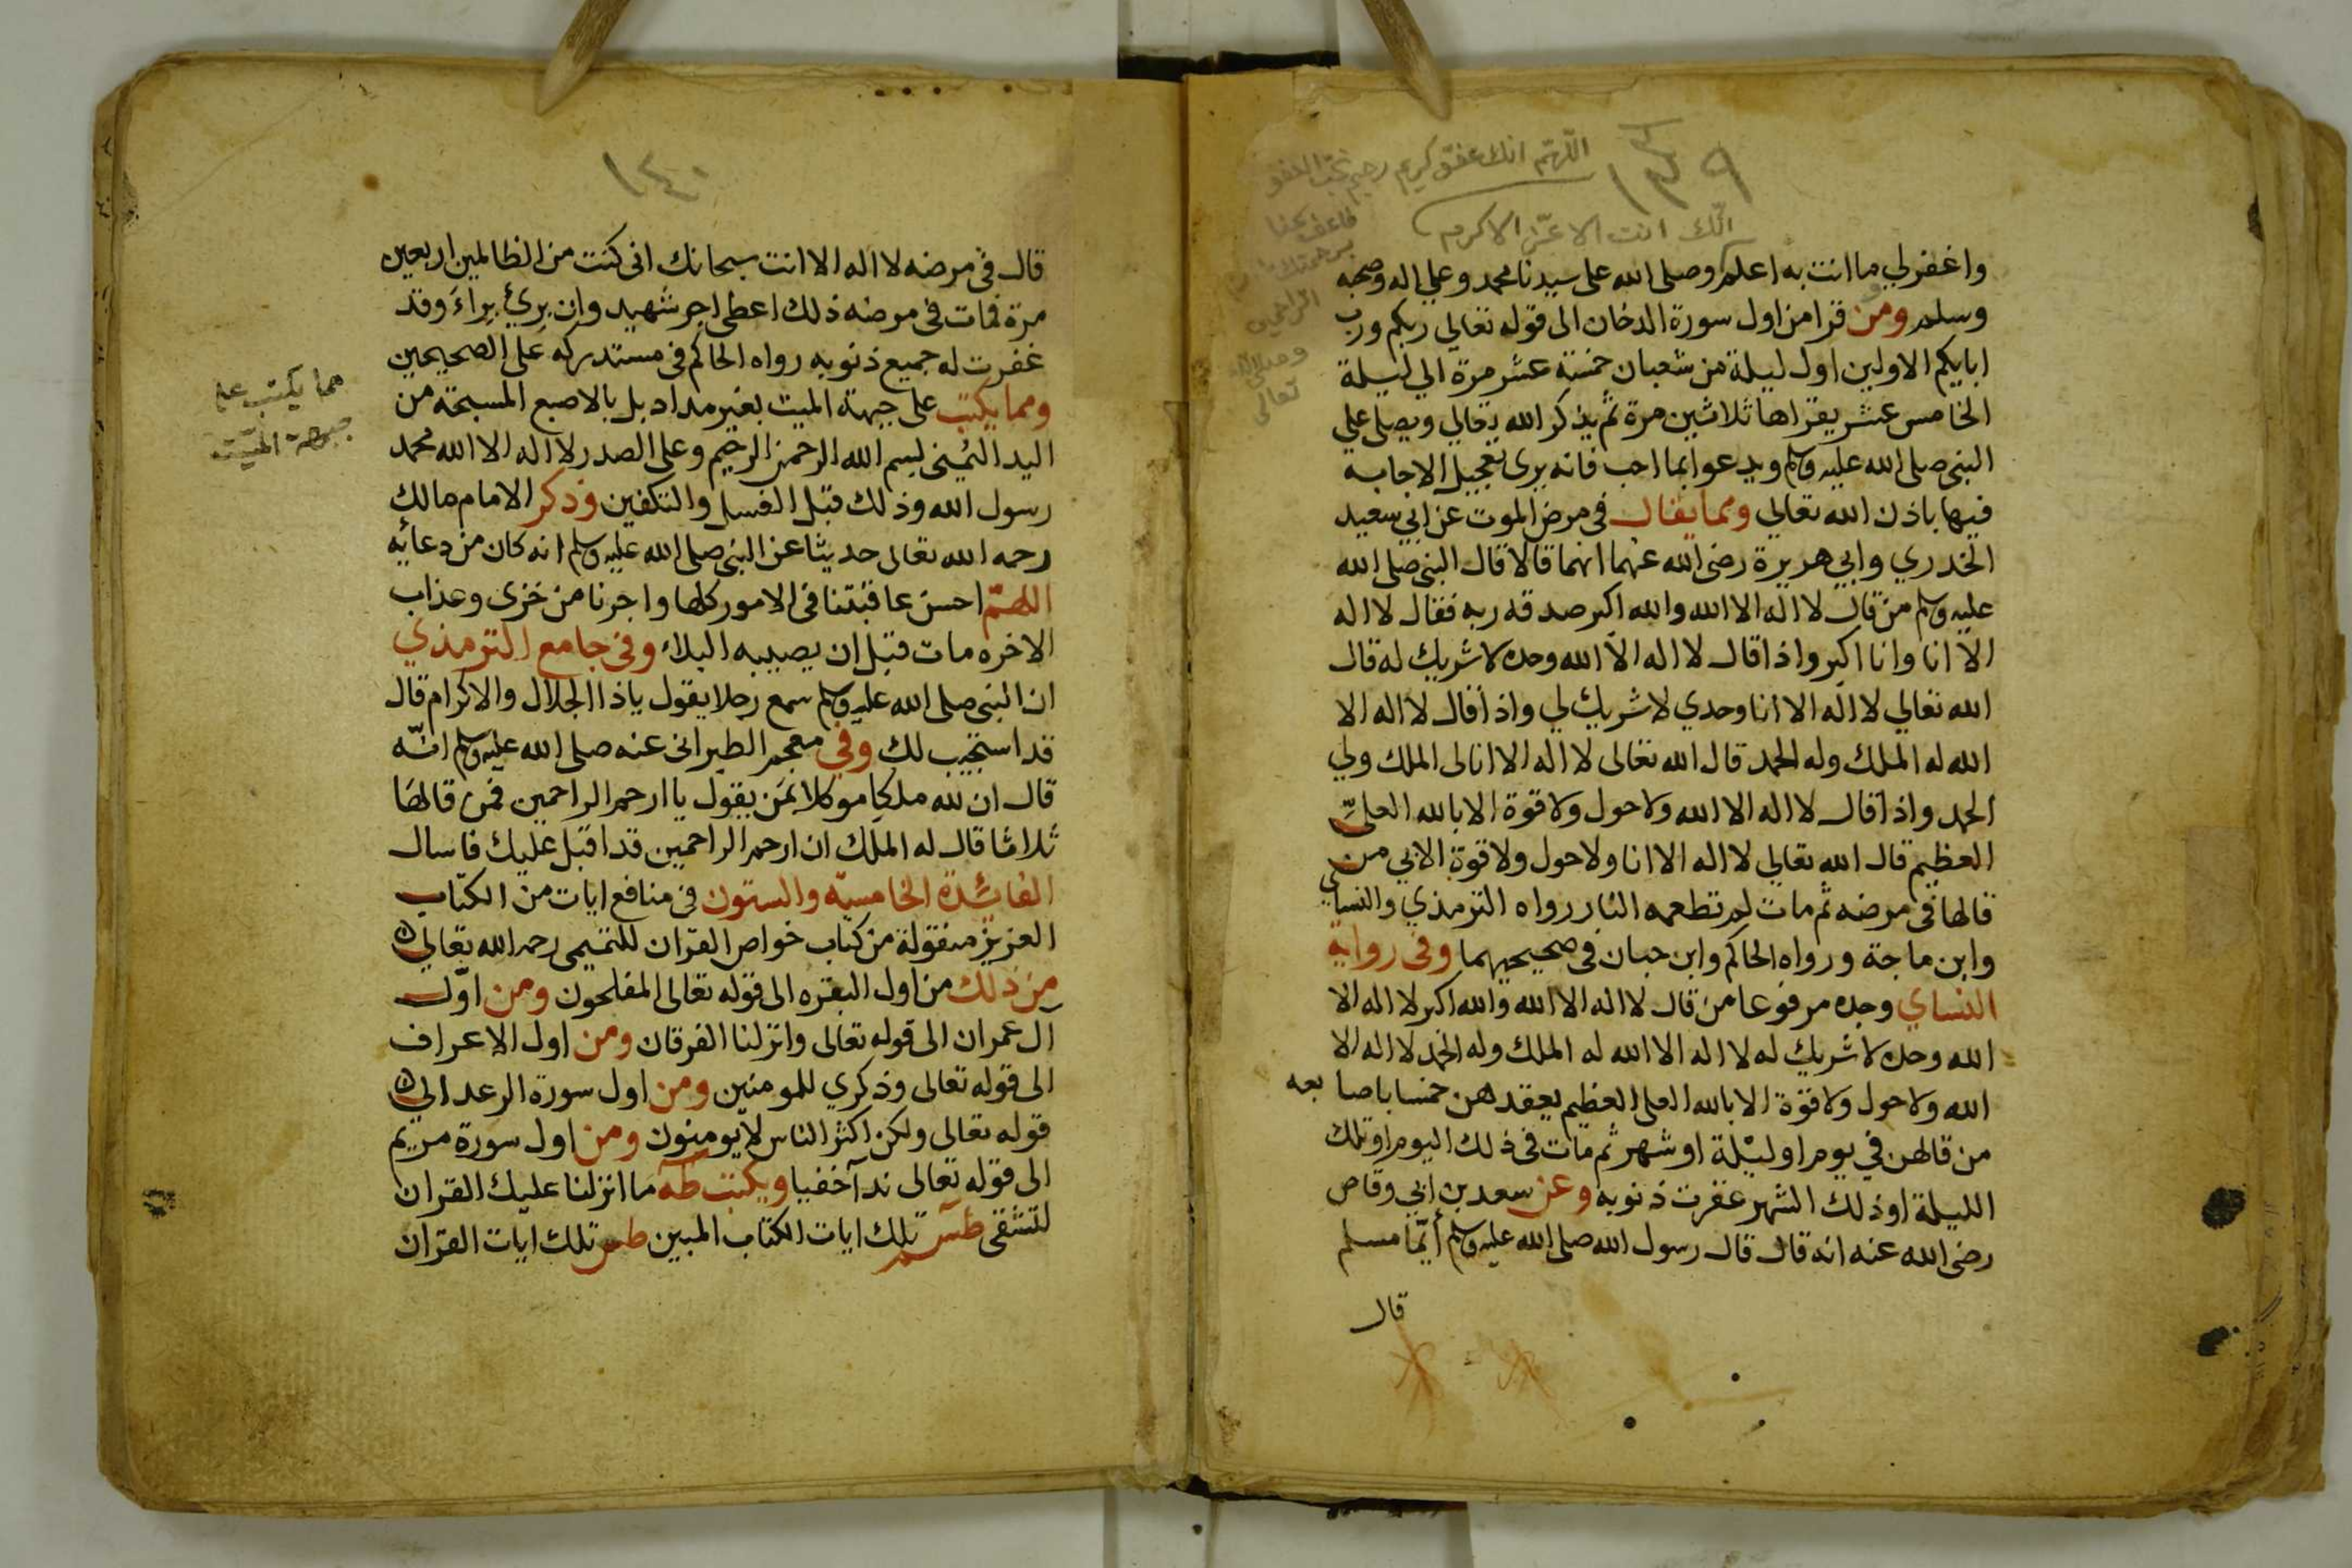 ١٣٩
اللهم انك عفو كريم رحيم تحب العفو
فاعف عنا
برحمتك يا ارحم
الراحمين
تعالى
انك انت الاعز الاكرم
واغفر لي ما انت به اعلم وصلى الله على سيدنا محمد وعلي اله وصحبه
وسلم ومن قرا من اول سورة الدخان الى قوله تعالي ربكم ورب
ابايكم الاولين اول ليلة من شعبان خمسة عشر مرة الي ليلة
الخامس عشر يقراها ثلاثين مرة ثم يذكر الله تعالي ويصلي علي
النبي صلى الله عليه وسلم ويدعوا بما احب فانه يرى تعجيل الاجابه
فيها باذن الله تعالي ومما يقال في مرض الموت عن ابي سعيد
الخدري وابي هريرة رضى الله عنهما انهما قالا قال النبي صلى الله
عليه وسلم من قال لا اله الا الله والله اكبر صدقه ربه فقال لا اله
الا انا وانا اكبر واذا قال لا اله الا الله وحده لا شريك له قال
الله تعالي لا اله الا انا وحدي لا شريك لي واذا قال لا اله الا
الله له الملك وله الحمد قال الله تعالى لا اله الا انا لى الملك ولي
الحمد واذا قال لا اله الا الله ولا حول ولا قوة الا بالله العلي
العظيم قال الله تعالي لا اله الا انا ولا حول ولا قوة الا بي من
قالها في مرضه ثم مات لم تطعمه النار رواه الترمذي والنساي
وابن ماجة ورواه الحاكم وابن حبان في صحيحيهما وفي رواية
النساي وحده مرفوعا من قال لا اله الا الله والله اكبر لا اله الا
الله وحده لا شريك له لا اله الا الله له الملك وله الحمد لا اله الا
الله ولا حول ولا قوة الا بالله العلي العظيم يعقدهن خمسا باصابعه
من قالهن في يوم او ليلة او شهر ثم مات في ذلك اليوم او تلك
الليلة او ذلك الشهر غفرت ذنوبه وعن سعد بن ابي وقاص
رضى الله عنه انه قال قال رسول الله صلى الله عليه وسلم أيما مسلم
قال
١٤٠
قال في مرضه لا اله الا انت سبحانك انى كنت من الظالمين اربعين
مرة فمات في مرضه ذلك اعطى اجر شهيد وان برئ براء وقد
غفرت له جميع ذنوبه رواه الحاكم في مستدركه على الصحيحين
ومما يكتب على جبهة الميت بغير مداد بل بالاصبع المسبحة من
اليد اليمنى بسم الله الرحمن الرحيم وعلى الصدر لا اله الا الله محمد
رسول الله وذلك قبل الغسل والتكفين وذكر الامام مالك
رحمه الله تعالى حديثا عن النبي صلى الله عليه وسلم انه كان من دعائه
اللهم احسن عاقبتنا في الامور كلها واجرنا من خزى وعذاب
الاخره مات قبل ان يصيبه البلاء وفي جامع الترمذي
ان النبي صلى الله عليه وسلم سمع رجلا يقول ياذا الجلال والاكرام قال
قد استجيب لك وفي معجم الطبرانى عنه صلى الله عليه وسلم انه
قال ان لله ملكا موكلا بمن يقول يا ارحم الراحمين فمن قالها
ثلاثا قال له الملك ان ارحم الراحمين قد اقبل عليك فاسال
الفائدة الخامسة والستون في منافع ايات من الكتاب
العزيز منقولة من كتاب خواص القران للتميمى رحمه الله تعالي
من ذلك من اول البقره الى قوله تعالى المفلحون ومن اول
ال عمران الى قوله تعالى وانزلنا الفرقان ومن اول الاعراف
الى قوله تعالى وذكري للمومنين ومن اول سورة الرعد الي
قوله تعالى ولكن اكثر الناس لا يومنون ومن اول سورة مريم
الى قوله تعالى ندآ خفيا ويكتب طه ما انزلنا عليك القران
لتشقى طسم تلك ايات الكتاب المبين طس تلك ايات القران
مما يكتب على
جبهة الميت